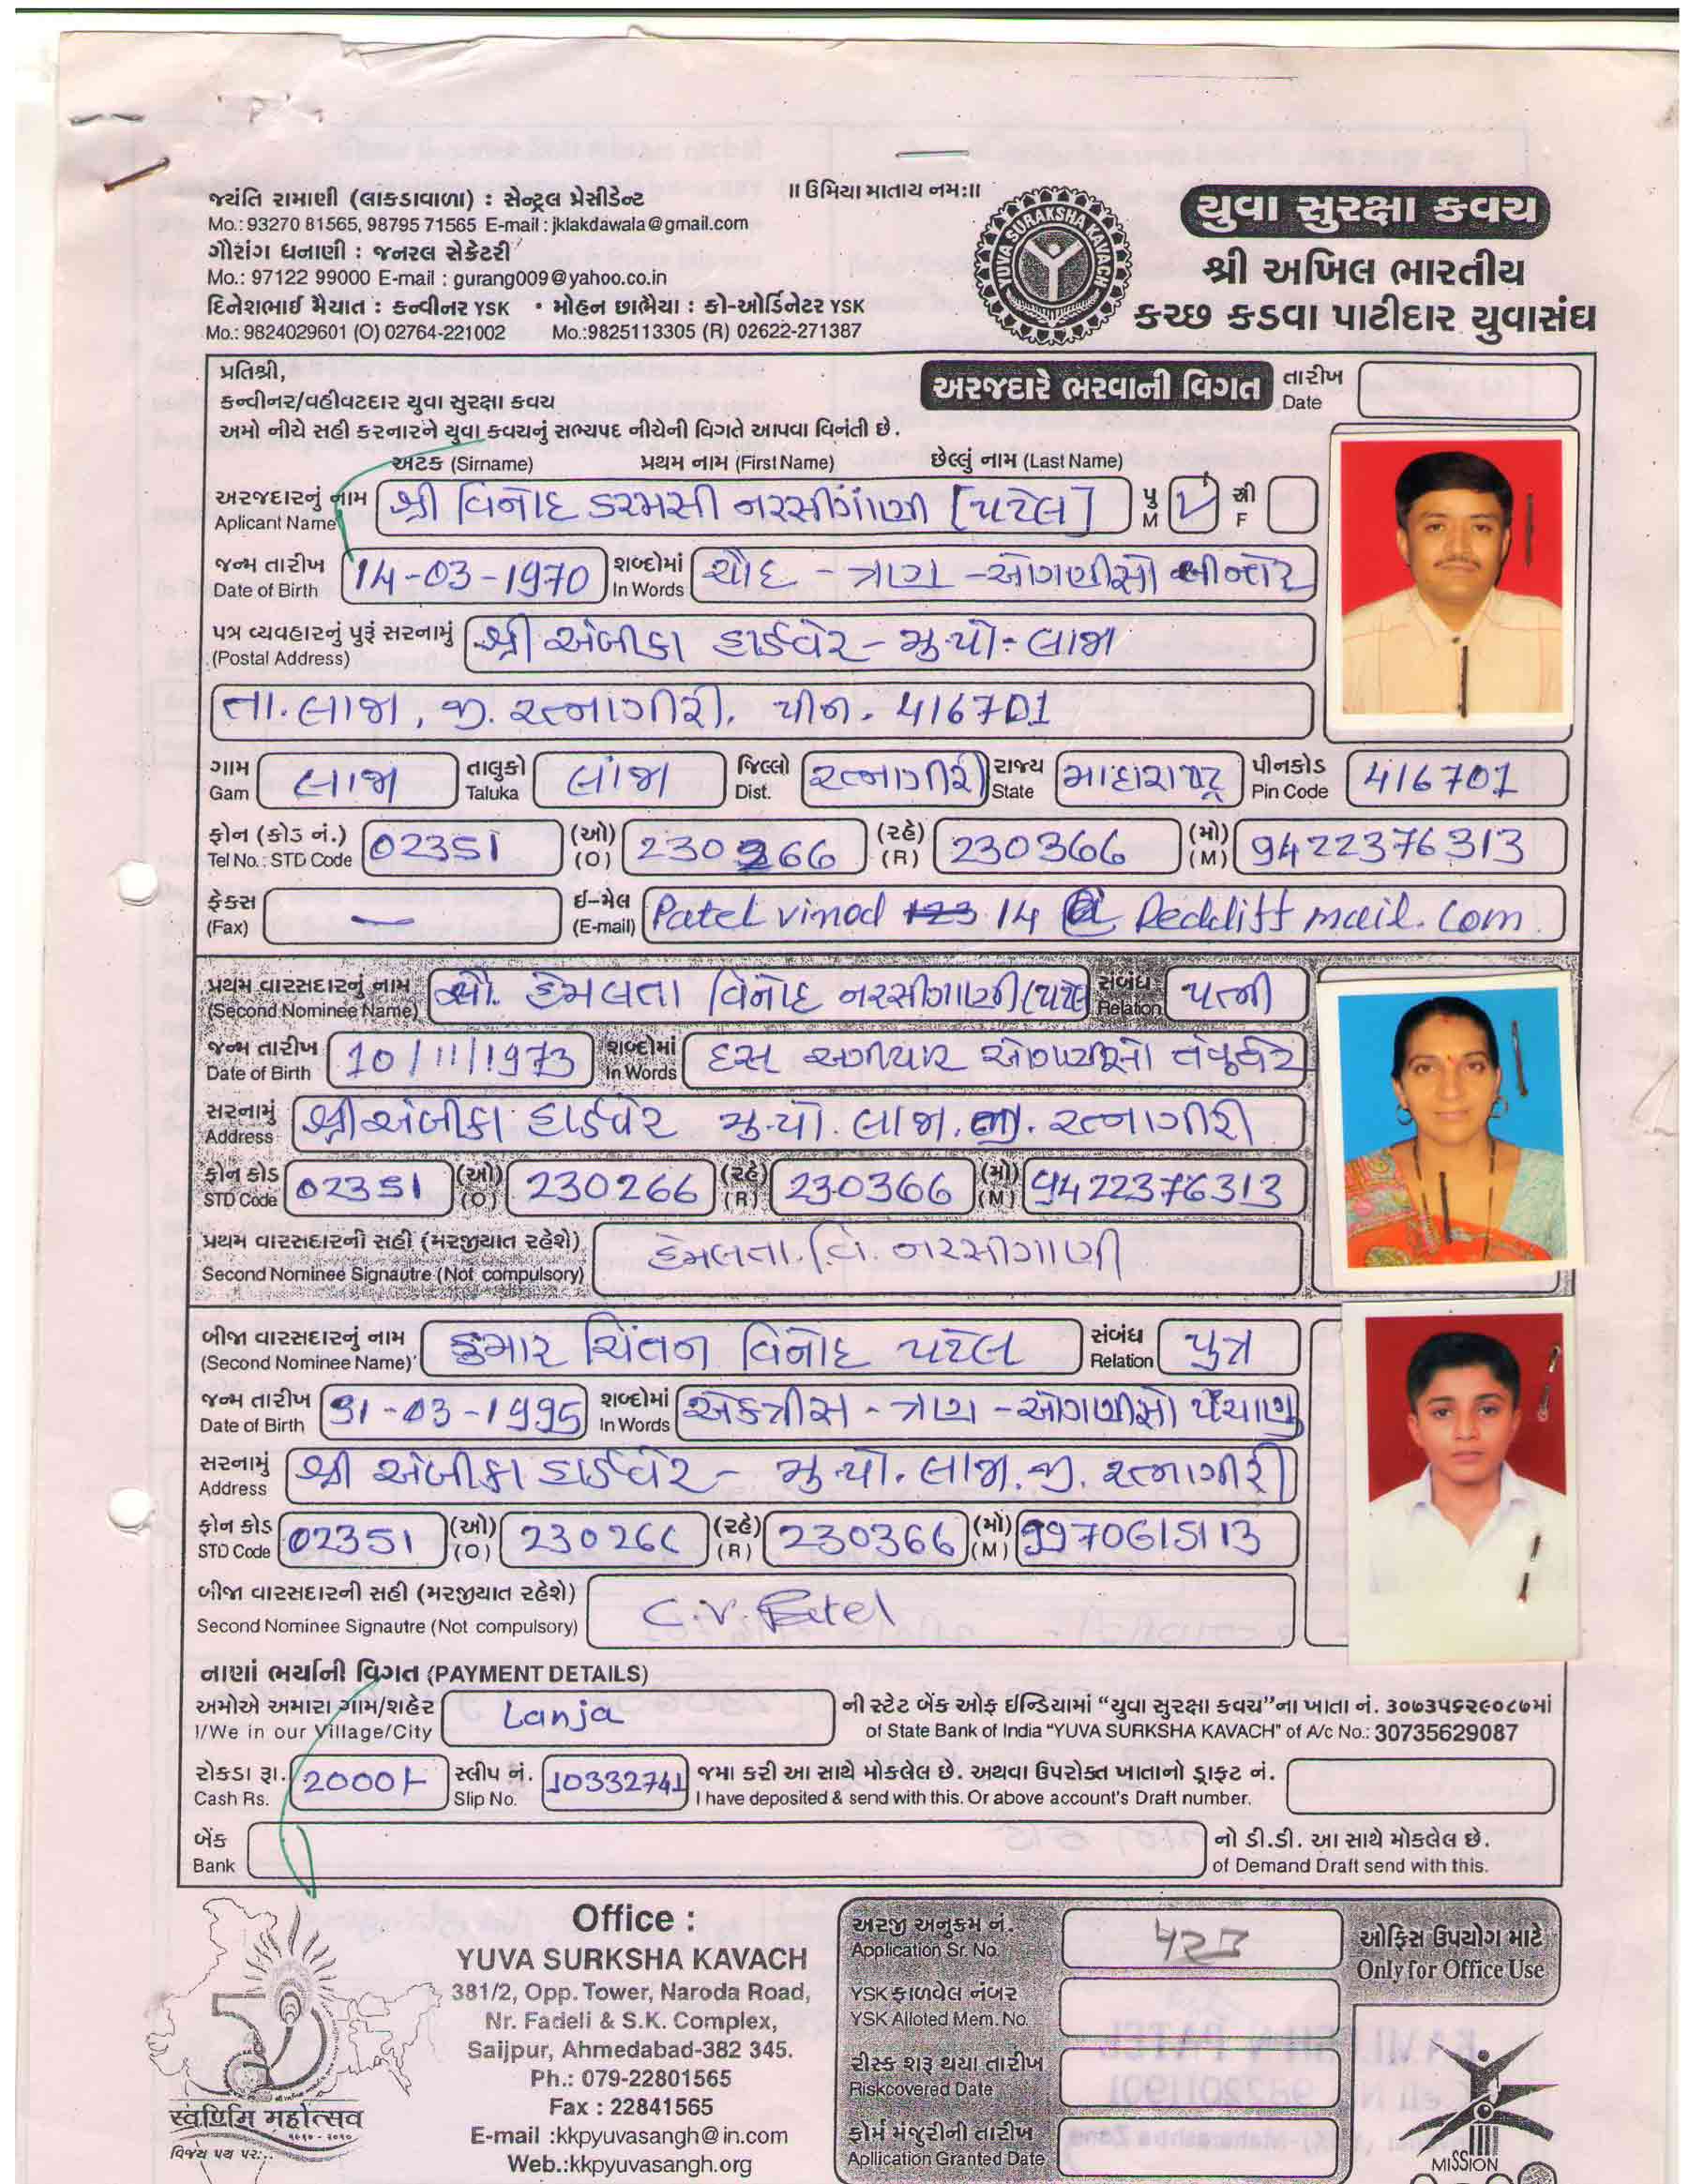 જ્યંતિ રામાણી (લાકડાવાળા) : સેન્ટ્રલ પ્રેસીડેન્ટ
Mo.: 93270 81565, 98795 71565 E-mail : jklakdawala@gmail.com
ગૌરાંગ ધનાણી : જનરલ સેક્રેટરી
Mo.: 97122 99000 E-mail : gurang009@yahoo.co.in
દિનેશભાઈ મૈયાત : કન્વીનર YSK • મોહન છાભૈયા : કો-ઓર્ડિનેટર YSK
Mo.: 9824029601 (O) 02764-221002 Mo.:9825113305 (R) 02622-271387
॥ ઉમિયા માતાય નમઃ॥
YUVA SURAKSHA KAVACH
યુવા સુરક્ષા કવચ
શ્રી અખિલ ભારતીય
કચ્છ કડવા પાટીદાર યુવાસંઘ
પ્રતિશ્રી,
કન્વીનર/વહીવટદાર યુવા સુરક્ષા કવચ
અરજદારે ભરવાની વિગત તારીખ Date
અમો નીચે સહી કરનારને યુવા કવચનું સભ્યપદ નીચેની વિગતે આપવા વિનંતી છે.
અટક (Sirname) પ્રથમ નામ (First Name) છેલ્લું નામ (Last Name)
અરજદારનું નામ Aplicant Name શ્રી વિનોદ કરમસી નરસીંગાણી [પટેલ] પુ M ✓ સ્ત્રી F
જન્મ તારીખ Date of Birth 14-03-1970 શબ્દોમાં In Words ચૌદ - ત્રણ - ઓગણીસો સીત્તેર
પત્ર વ્યવહારનું પુરૂં સરનામું (Postal Address) શ્રી અંબીકા હાર્ડવેર - મુ.પો. લાંજા
તા. લાંજા, જી. રત્નાગીરી. પીન. 416701
ગામ Gam લાંજા તાલુકો Taluka લાંજા જિલ્લો Dist. રત્નાગીરી રાજ્ય State માહારાષ્ટ્ર પીનકોડ Pin Code 416701
ફોન (કોડ નં.) Tel No.: STD Code 02351 (ઓ) (O) 230266 (રહે) (R) 230366 (મો) (M) 9422376313
ફેક્સ (Fax) — ઈ-મેલ (E-mail) Patel vinod 123 14 @ Reddiff mail. Com
પ્રથમ વારસદારનું નામ (Second Nominee Name) સૌ. હેમલતા વિનોદ નરસીગાણી (પટેલ સંબંધ Relation પત્ની
જન્મ તારીખ Date of Birth 10/11/1973 શબ્દોમાં In Words દસ અગીયાર ઓગણીસો
સરનામું Address શ્રી અંબીકા હાર્ડવેર મુ.પો. લાંજા. જી. રત્નાગીરી
ફોન કોડ STD Code 02351 (ઓ) (O) 230266 (રહે) (R) 230366 (મો) (M) 9422376313
પ્રથમ વારસદારની સહી (મરજીયાત રહેશે) Second Nominee Signautre (Not compulsory) હેમલતા. વિ. નરસીગાણી
બીજા વારસદારનું નામ (Second Nominee Name) કુમાર ચિંતન વિનોદ પટેલ સંબંધ Relation પુત્ર
જન્મ તારીખ Date of Birth 31-03-1995 શબ્દોમાં In Words એકત્રીસ - ત્રણ - ઓગણીસો પંચાણુ
સરનામું Address શ્રી અંબીકા હાર્ડવેર - મુ.પો. લાંજા. જી. રત્નાગીરી
ફોન કોડ STD Code 02351 (ઓ) (O) 230266 (રહે) (R) 230366 (મો) (M) 9970615113
બીજા વારસદારની સહી (મરજીયાત રહેશે) Second Nominee Signautre (Not compulsory) C.V. Patel
નાણાં ભર્યાની વિગત (PAYMENT DETAILS)
અમોએ અમારા ગામ/શહેર I/We in our Village/City Lanja ની સ્ટેટ બેંક ઓફ ઈન્ડિયામાં "યુવા સુરક્ષા કવચ"ના ખાતા નં. ૩૦૭૩૫૬૨૯૦૮૭માં
of State Bank of India "YUVA SURKSHA KAVACH" of A/c No.: 30735629087
રોકડા રૂા. Cash Rs. 2000/- સ્લીપ નં. Slip No. 10332741 જમા કરી આ સાથે મોકલેલ છે. અથવા ઉપરોક્ત ખાતાનો ડ્રાફ્ટ નં.
I have deposited & send with this. Or above account's Draft number.
બેંક Bank નો ડી.ડી. આ સાથે મોકલેલ છે.
of Demand Draft send with this.
Office :
YUVA SURKSHA KAVACH
381/2, Opp. Tower, Naroda Road,
Nr. Fadeli & S.K. Complex,
Saijpur, Ahmedabad-382 345.
Ph.: 079-22801565
Fax : 22841565
E-mail :kkpyuvasangh@in.com
Web.:kkpyuvasangh.org
સ્વર્ણિમ મહોત્સવ
૧૯૬૦ - ૨૦૧૦
વિજય પથ પર...
અરજી અનુક્રમ નં. Application Sr. No.
YSK ફાળવેલ નંબર YSK Alloted Mem. No.
રીસ્ક શરૂ થયા તારીખ Riskcovered Date
ફોર્મ મંજુરીની તારીખ Apllication Granted Date
ઓફિસ ઉપયોગ માટે
Only for Office Use
MISSION